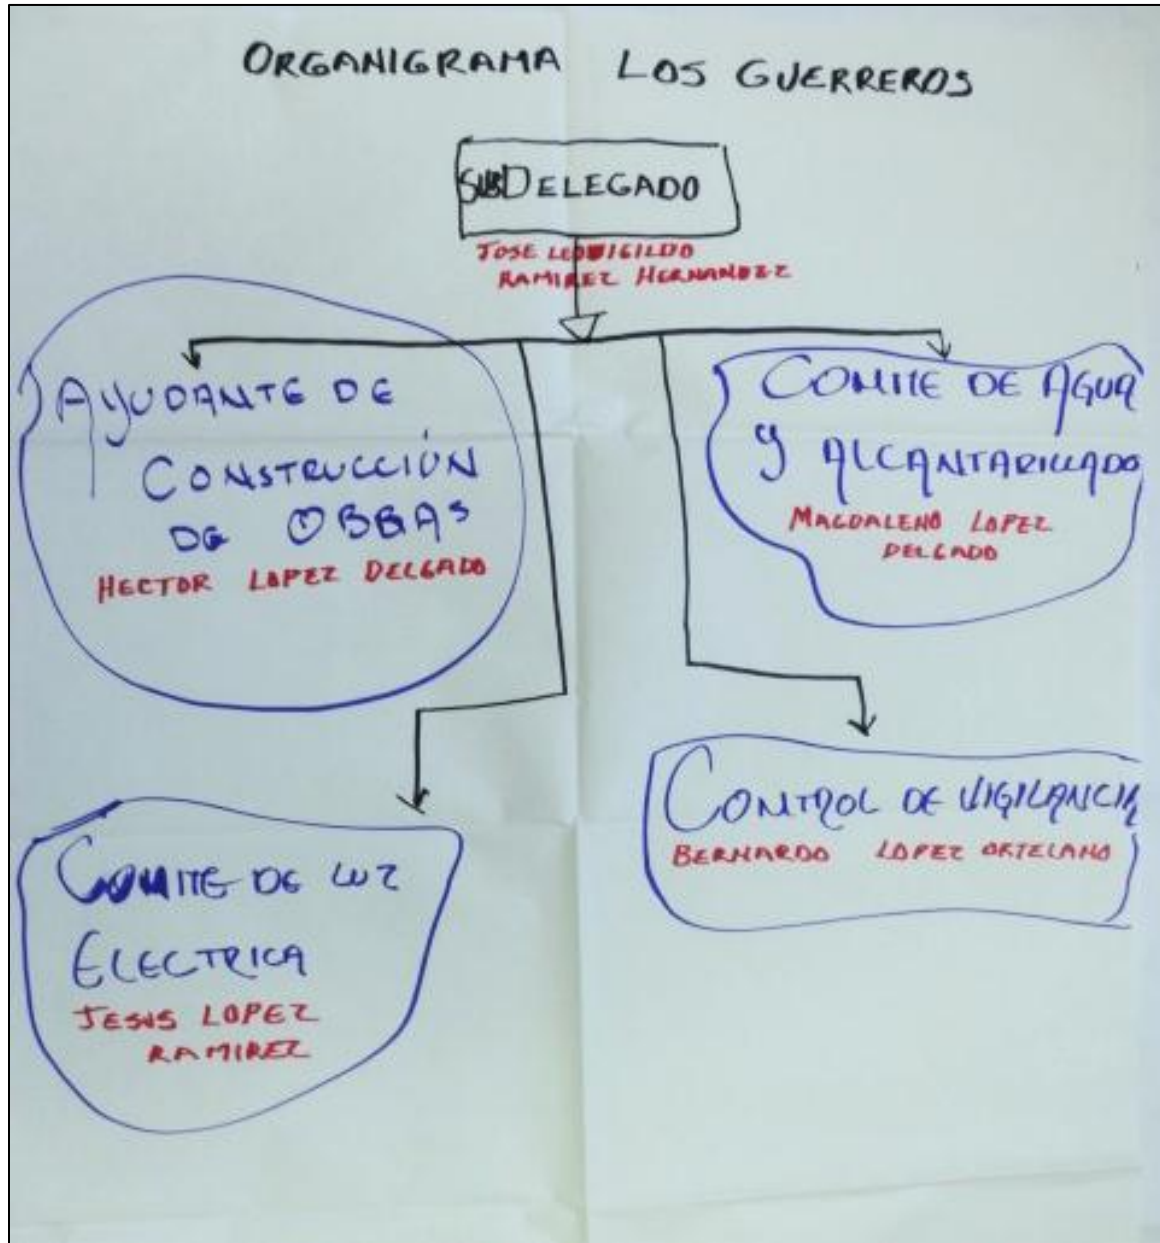 ORGANIGRAMA LOS GUERREROS
SUBDELEGADO
JOSE LEOVIGILDO
RAMIREZ HERNANDEZ
AYUDANTE DE
CONSTRUCCIÓN
DE OBRAS
HECTOR LOPEZ DELGADO
COMITE DE AGUA
Y ALCANTARILLADO
MAGDALENO LOPEZ
DELGADO
COMITE DE LUZ
ELECTRICA
JESUS LOPEZ
RAMIREZ
CONTROL DE VIGILANCIA
BERNARDO LOPEZ ORTELANO